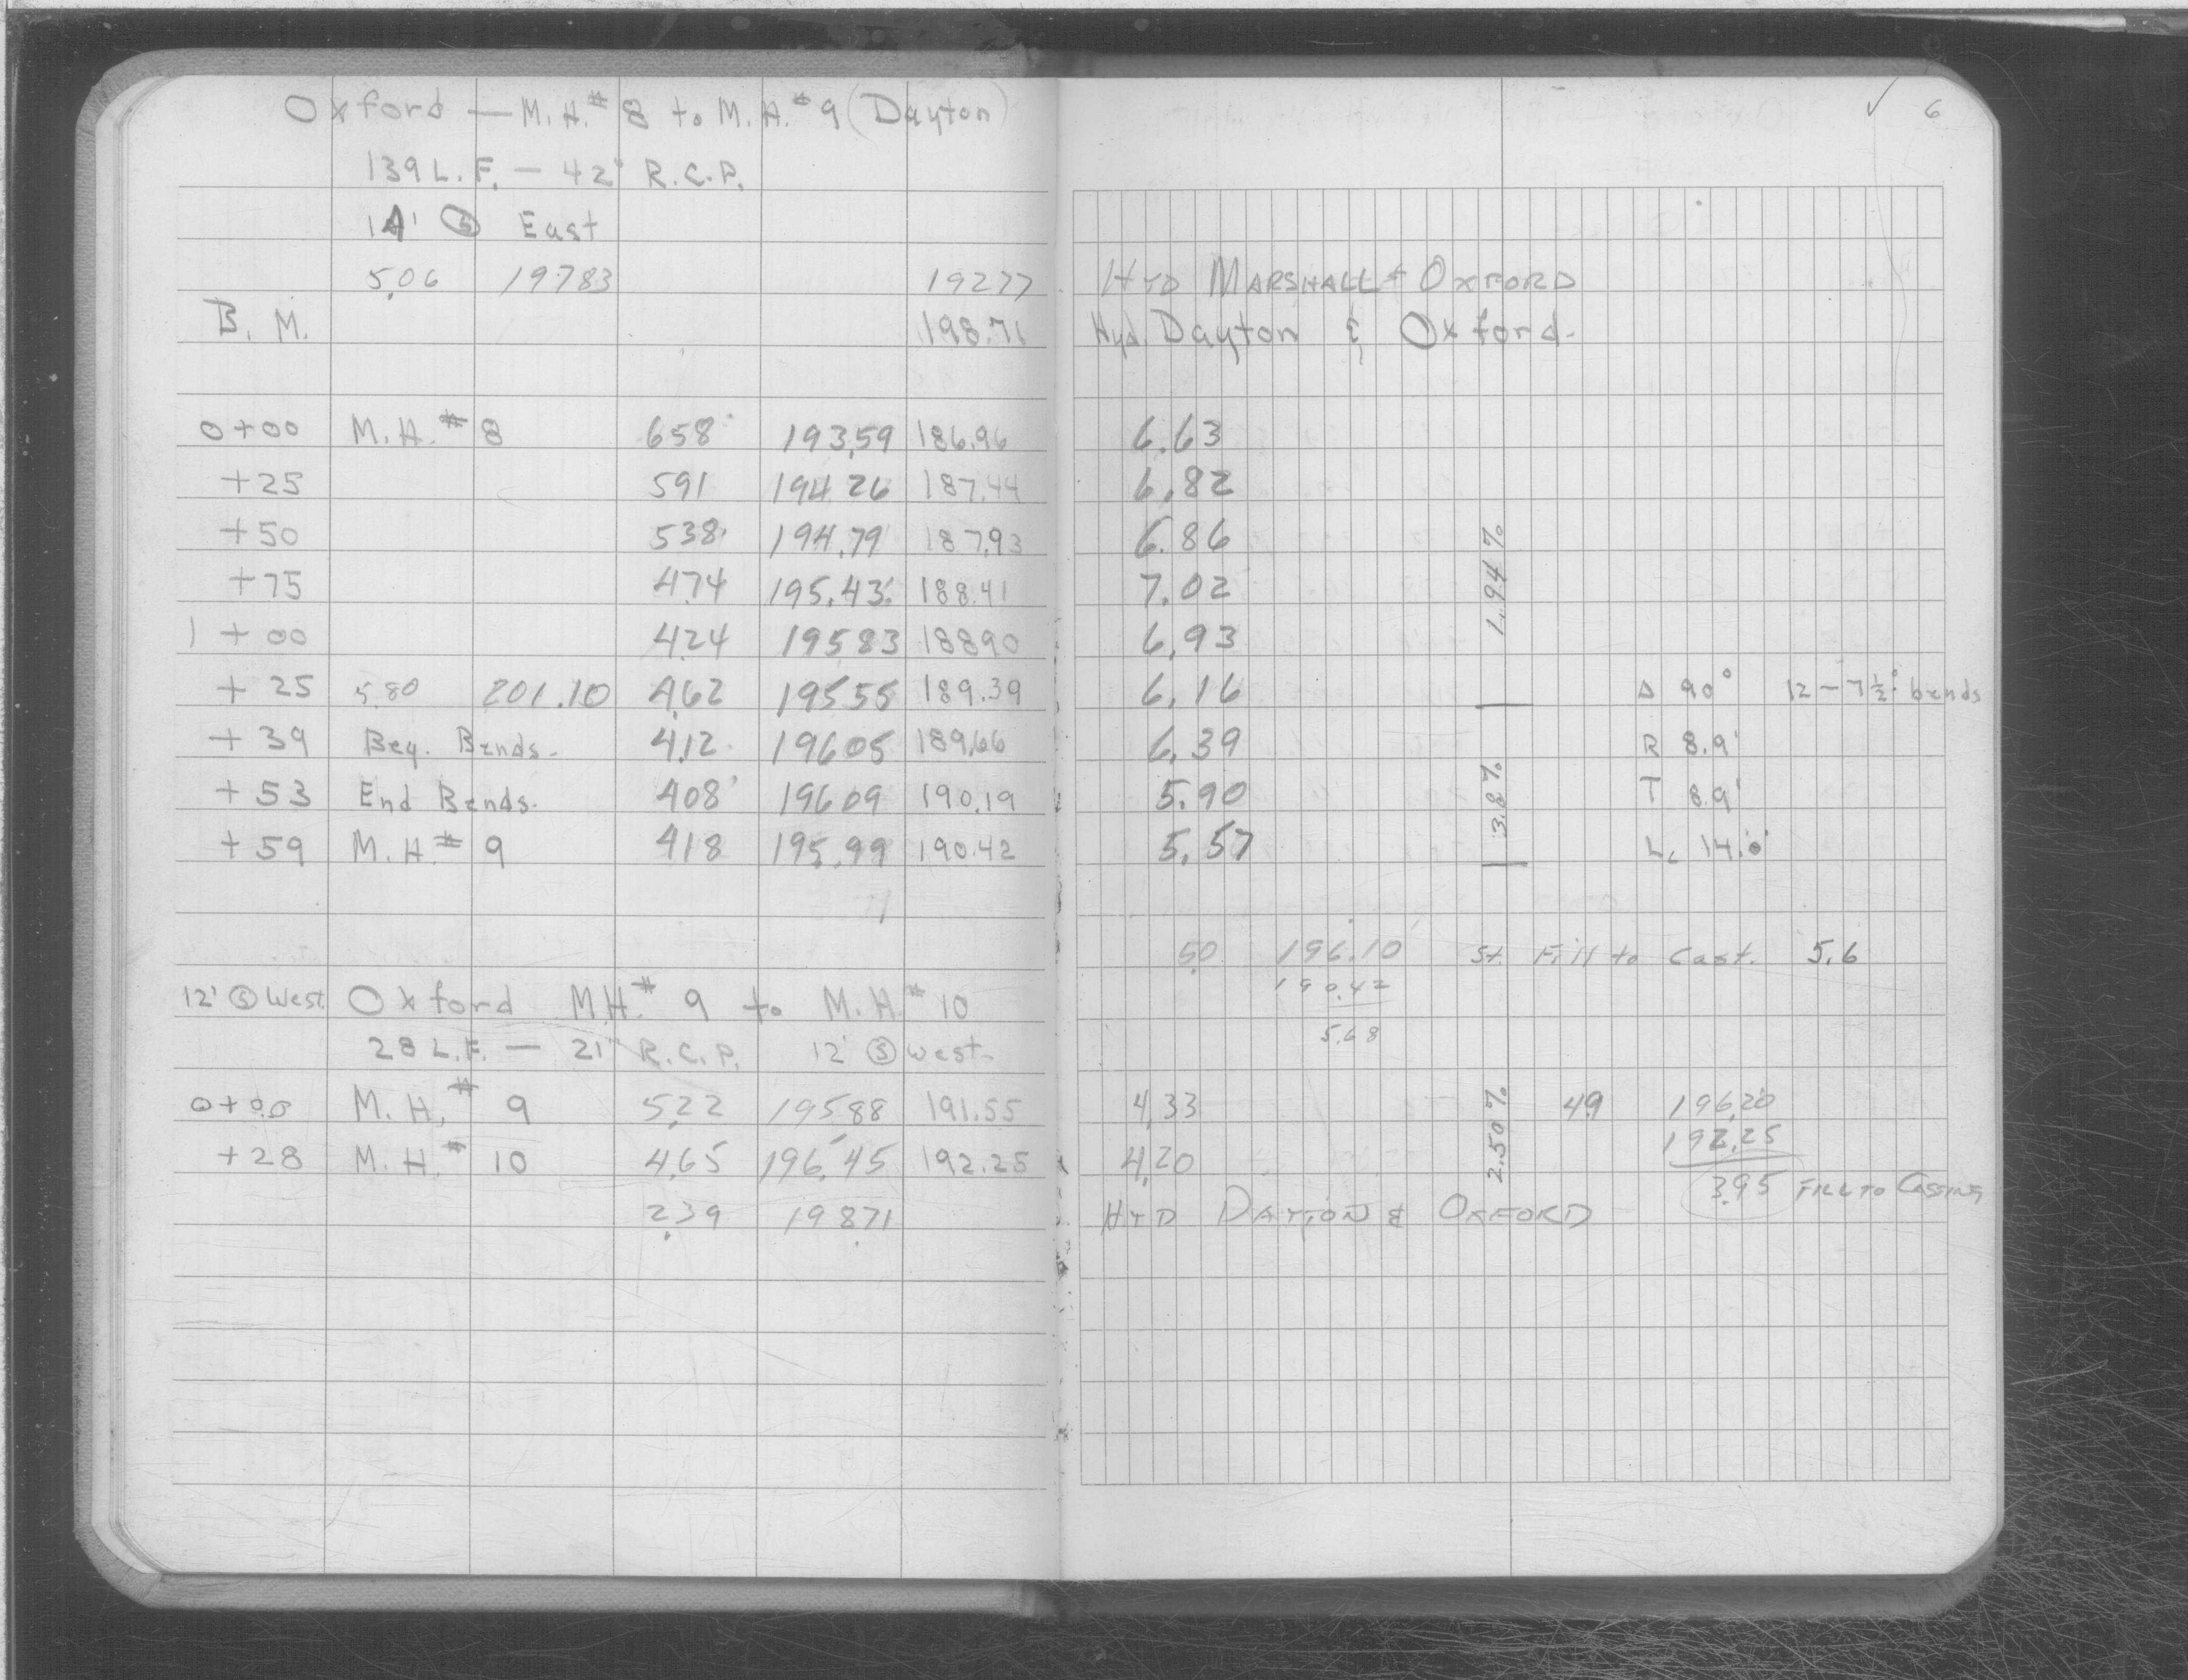 Oxford — M.H.# 8 to M.H.# 9 (Dayton)
139 L.F. — 42" R.C.P.
14' Ⓢ East
5.06 197.83 192.77
B.M. 198.71
0+00 M.H.# 8 6.58 193.59 186.96
+25 5.91 194.26 187.44
+50 5.38 194.79 187.93
+75 4.74 195.43 188.41
1+00 4.24 195.83 188.90
+25 5.80 201.10 4.62 195.55 189.39
+39 Beg. Bends. 4.12 196.05 189.66
+53 End Bends. 4.08 196.09 190.19
+59 M.H.# 9 4.18 195.99 190.42
12' Ⓢ West. Oxford M.H.# 9 to M.H.# 10
28 L.F. — 21" R.C.P. 12' Ⓢ West.
0+00 M.H.# 9 5.22 195.88 191.55
+28 M.H.# 10 4.65 196.45 192.25
2.39 198.71
✓ 6
HYD MARSHALL & OXFORD
Hyd. Dayton & Oxford.
6.63
6.82
6.86
7.02
6.93
6.16 Δ 90° 12 — 7½° bends
6.39 R 8.9'
5.90 T 8.9'
5.57 Lc 14.0'
1.94 %
3.82 %
5.0 196.10 St. Fill to Cast. 5.6
190.42
5.68
4.33 2.50 % 4.9 196.20
4.20 192.25
3.95 FILL TO CASTING
HYD DAYTON & OXFORD